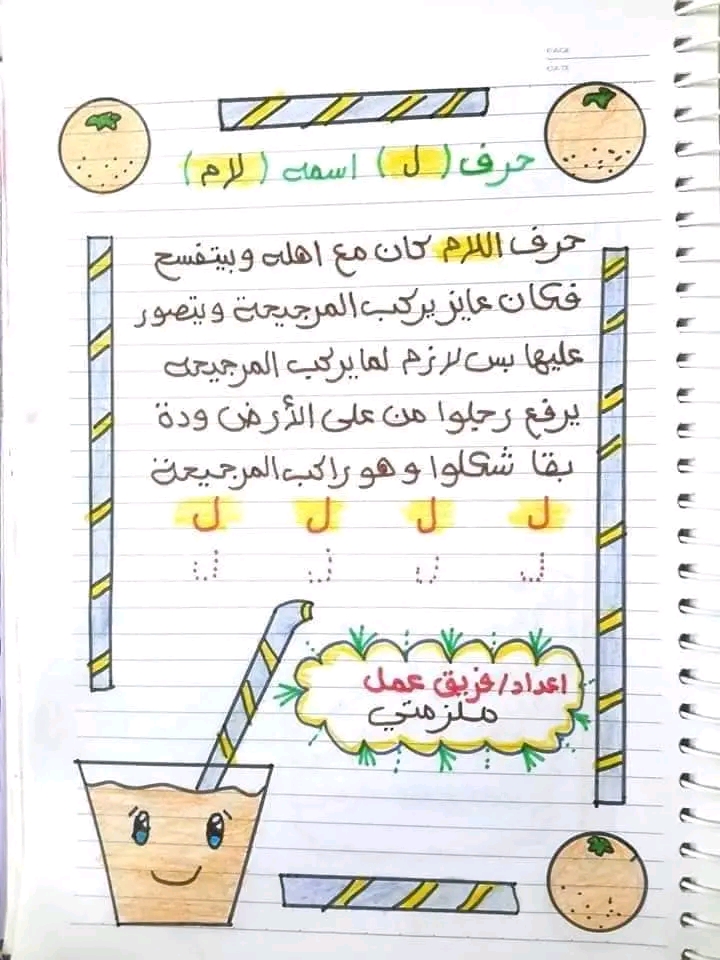 PAGE
DATE
حرف (ل) اسمه (لام)
حرف اللام كان مع اهله وبيتفسح
فكان عايز يركب المرجيحة ويتصور
عليها بس لازم لما يركب المرجيحه
يرفع رجلوا من على الأرض ودة
بقا شكلوا وهو راكب المرجيحة
ل ل ل ل
ل ل ل ل
اعداد/فريق عمل
ملزمتي